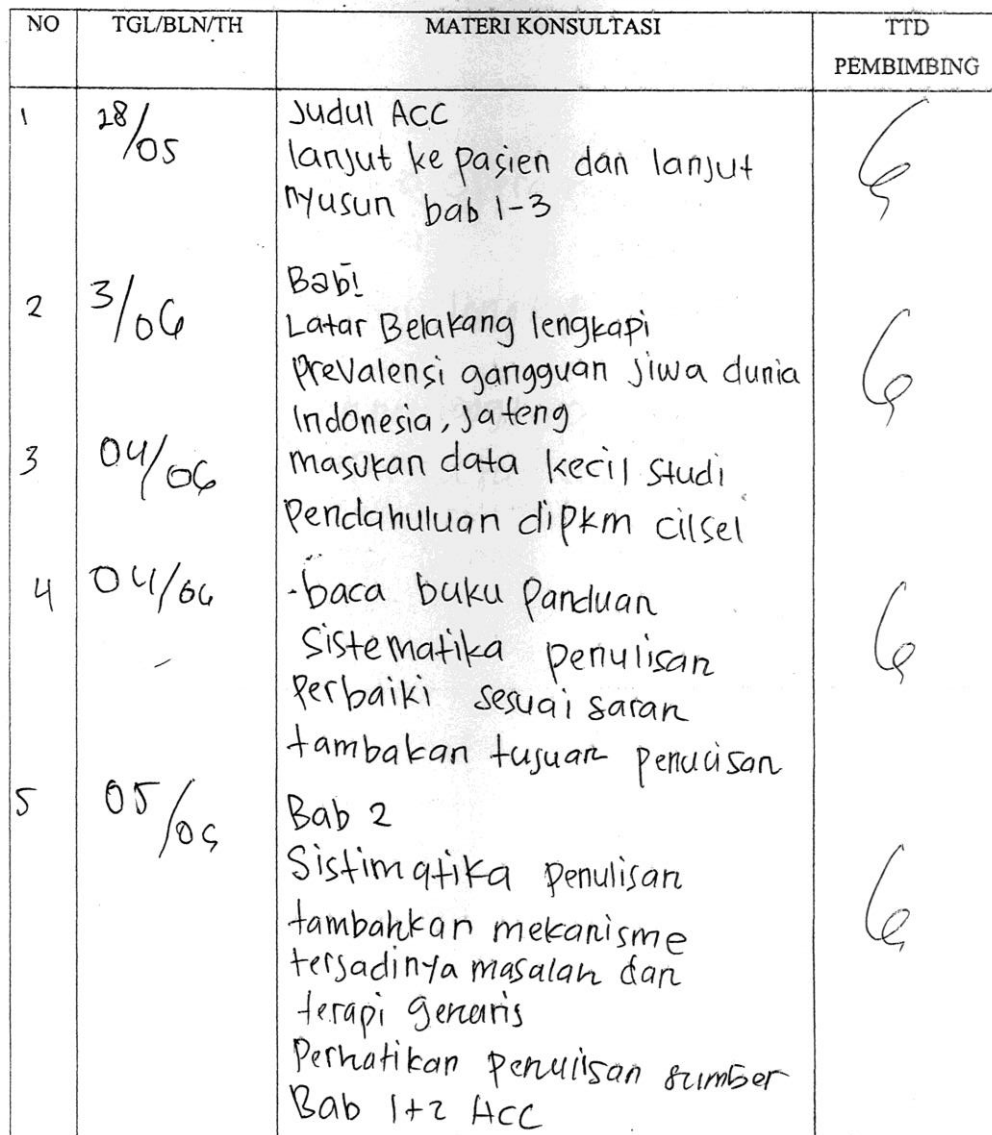 NO TGL/BLN/TH MATERI KONSULTASI TTD PEMBIMBING
1 28/05 Judul ACC
lanjut ke pasien dan lanjut
nyusun bab 1-3
Bab1
2 3/06 Latar Belakang lengkapi
Prevalensi gangguan jiwa dunia
Indonesia, Jateng
3 04/06 masukan data kecil studi
Pendahuluan dipkm cilsel
4 04/06 -baca buku Panduan
Sistematika penulisan
Perbaiki sesuai saran
tambakan tujuan penulisan
5 05/06 Bab 2
Sistimatika penulisan
tambahkan mekanisme
terjadinya masalah dan
terapi generis
Perhatikan penulisan sumber
Bab 1+2 ACC